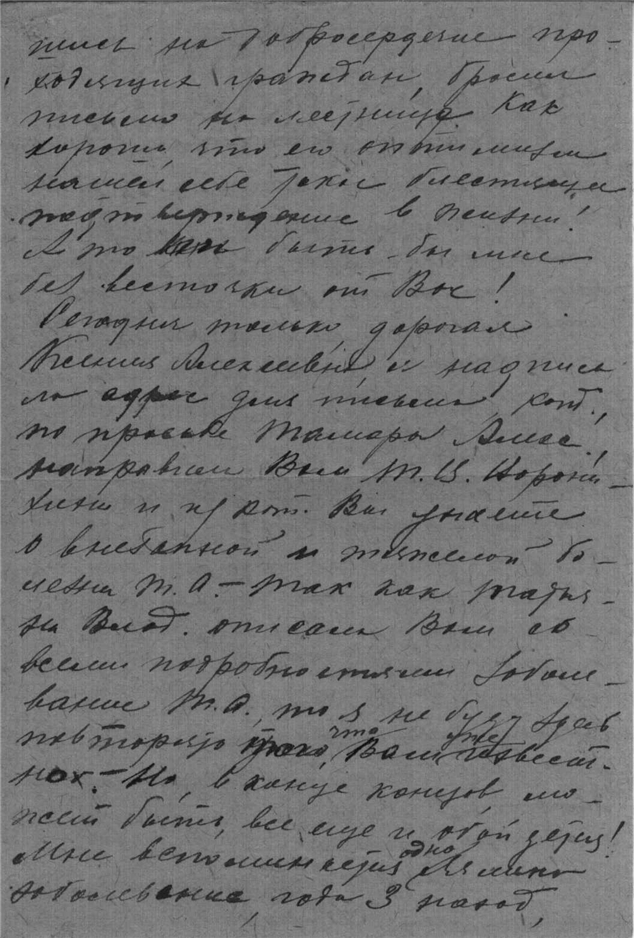 шись на добросердечие про-
ходящих граждан, бросил
письмо на лестнице. Как
хорошо, что его оптимизм
нашел себе такое блестящее
подтверждение в жизни!
А то быть бы мне
без весточки от Вас!
Сегодня только, дорогая
Ксения Алексеевна, и надписа
ла адрес для письма, кот.,
по просьбе Тамары Алекс.,
направили Вам Т. В.
и из кот. Вы узнаете
о внезапной и тяжелой бо-
лезни Т. А. – Так как Татья-
на Влад. описала Вам со
всеми подробностями заболе-
вание Т. А., то я не буду здесь
повторять того, что Вам уже известн.
Но, в конце концов, мо-
жет быть, все еще и обойдется!
Мне вспоминается одно Лялино
заболевание, года 3 назад,